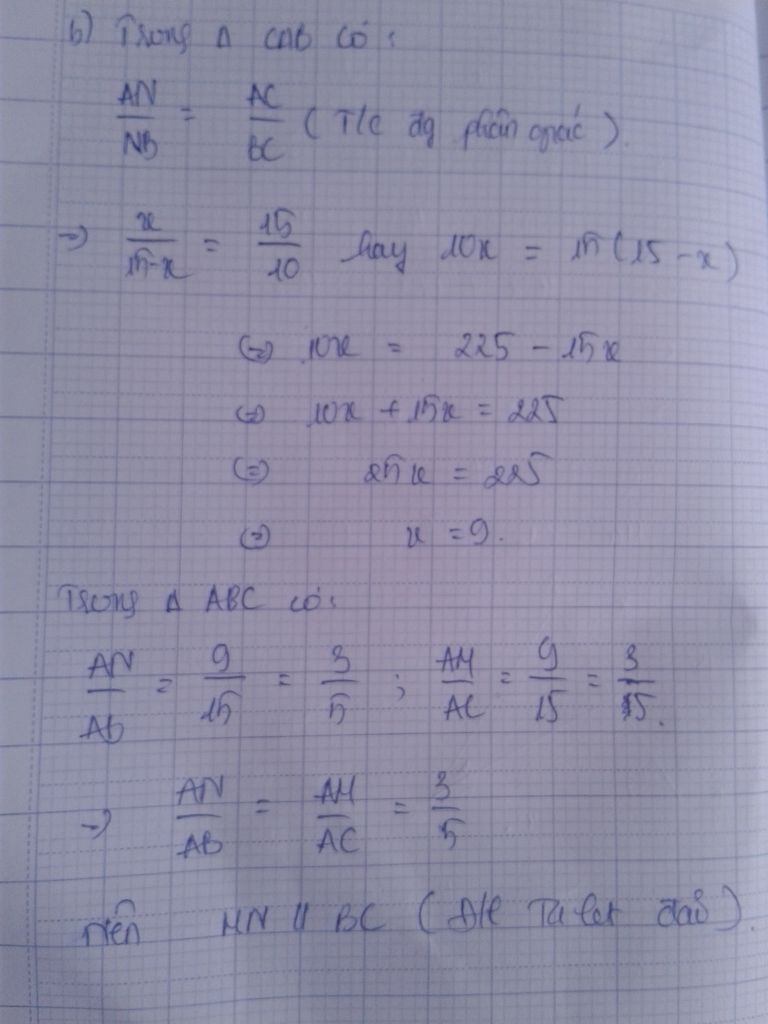 b) Trong Δ CAB có:
AN/NB = AC/BC (T/c đg phân giác).
=> x/(15-x) = 15/10 hay 10x = 15(15-x)
(=) 10x = 225 - 15x
(=) 10x + 15x = 225
(=) 25x = 225
(=) x = 9.
Trong Δ ABC có:
AN/AB = 9/15 = 3/5 ; AM/AC = 9/15 = 3/5.
=> AN/AB = AM/AC = 3/5
nên MN // BC (Đ/l Ta let đảo).